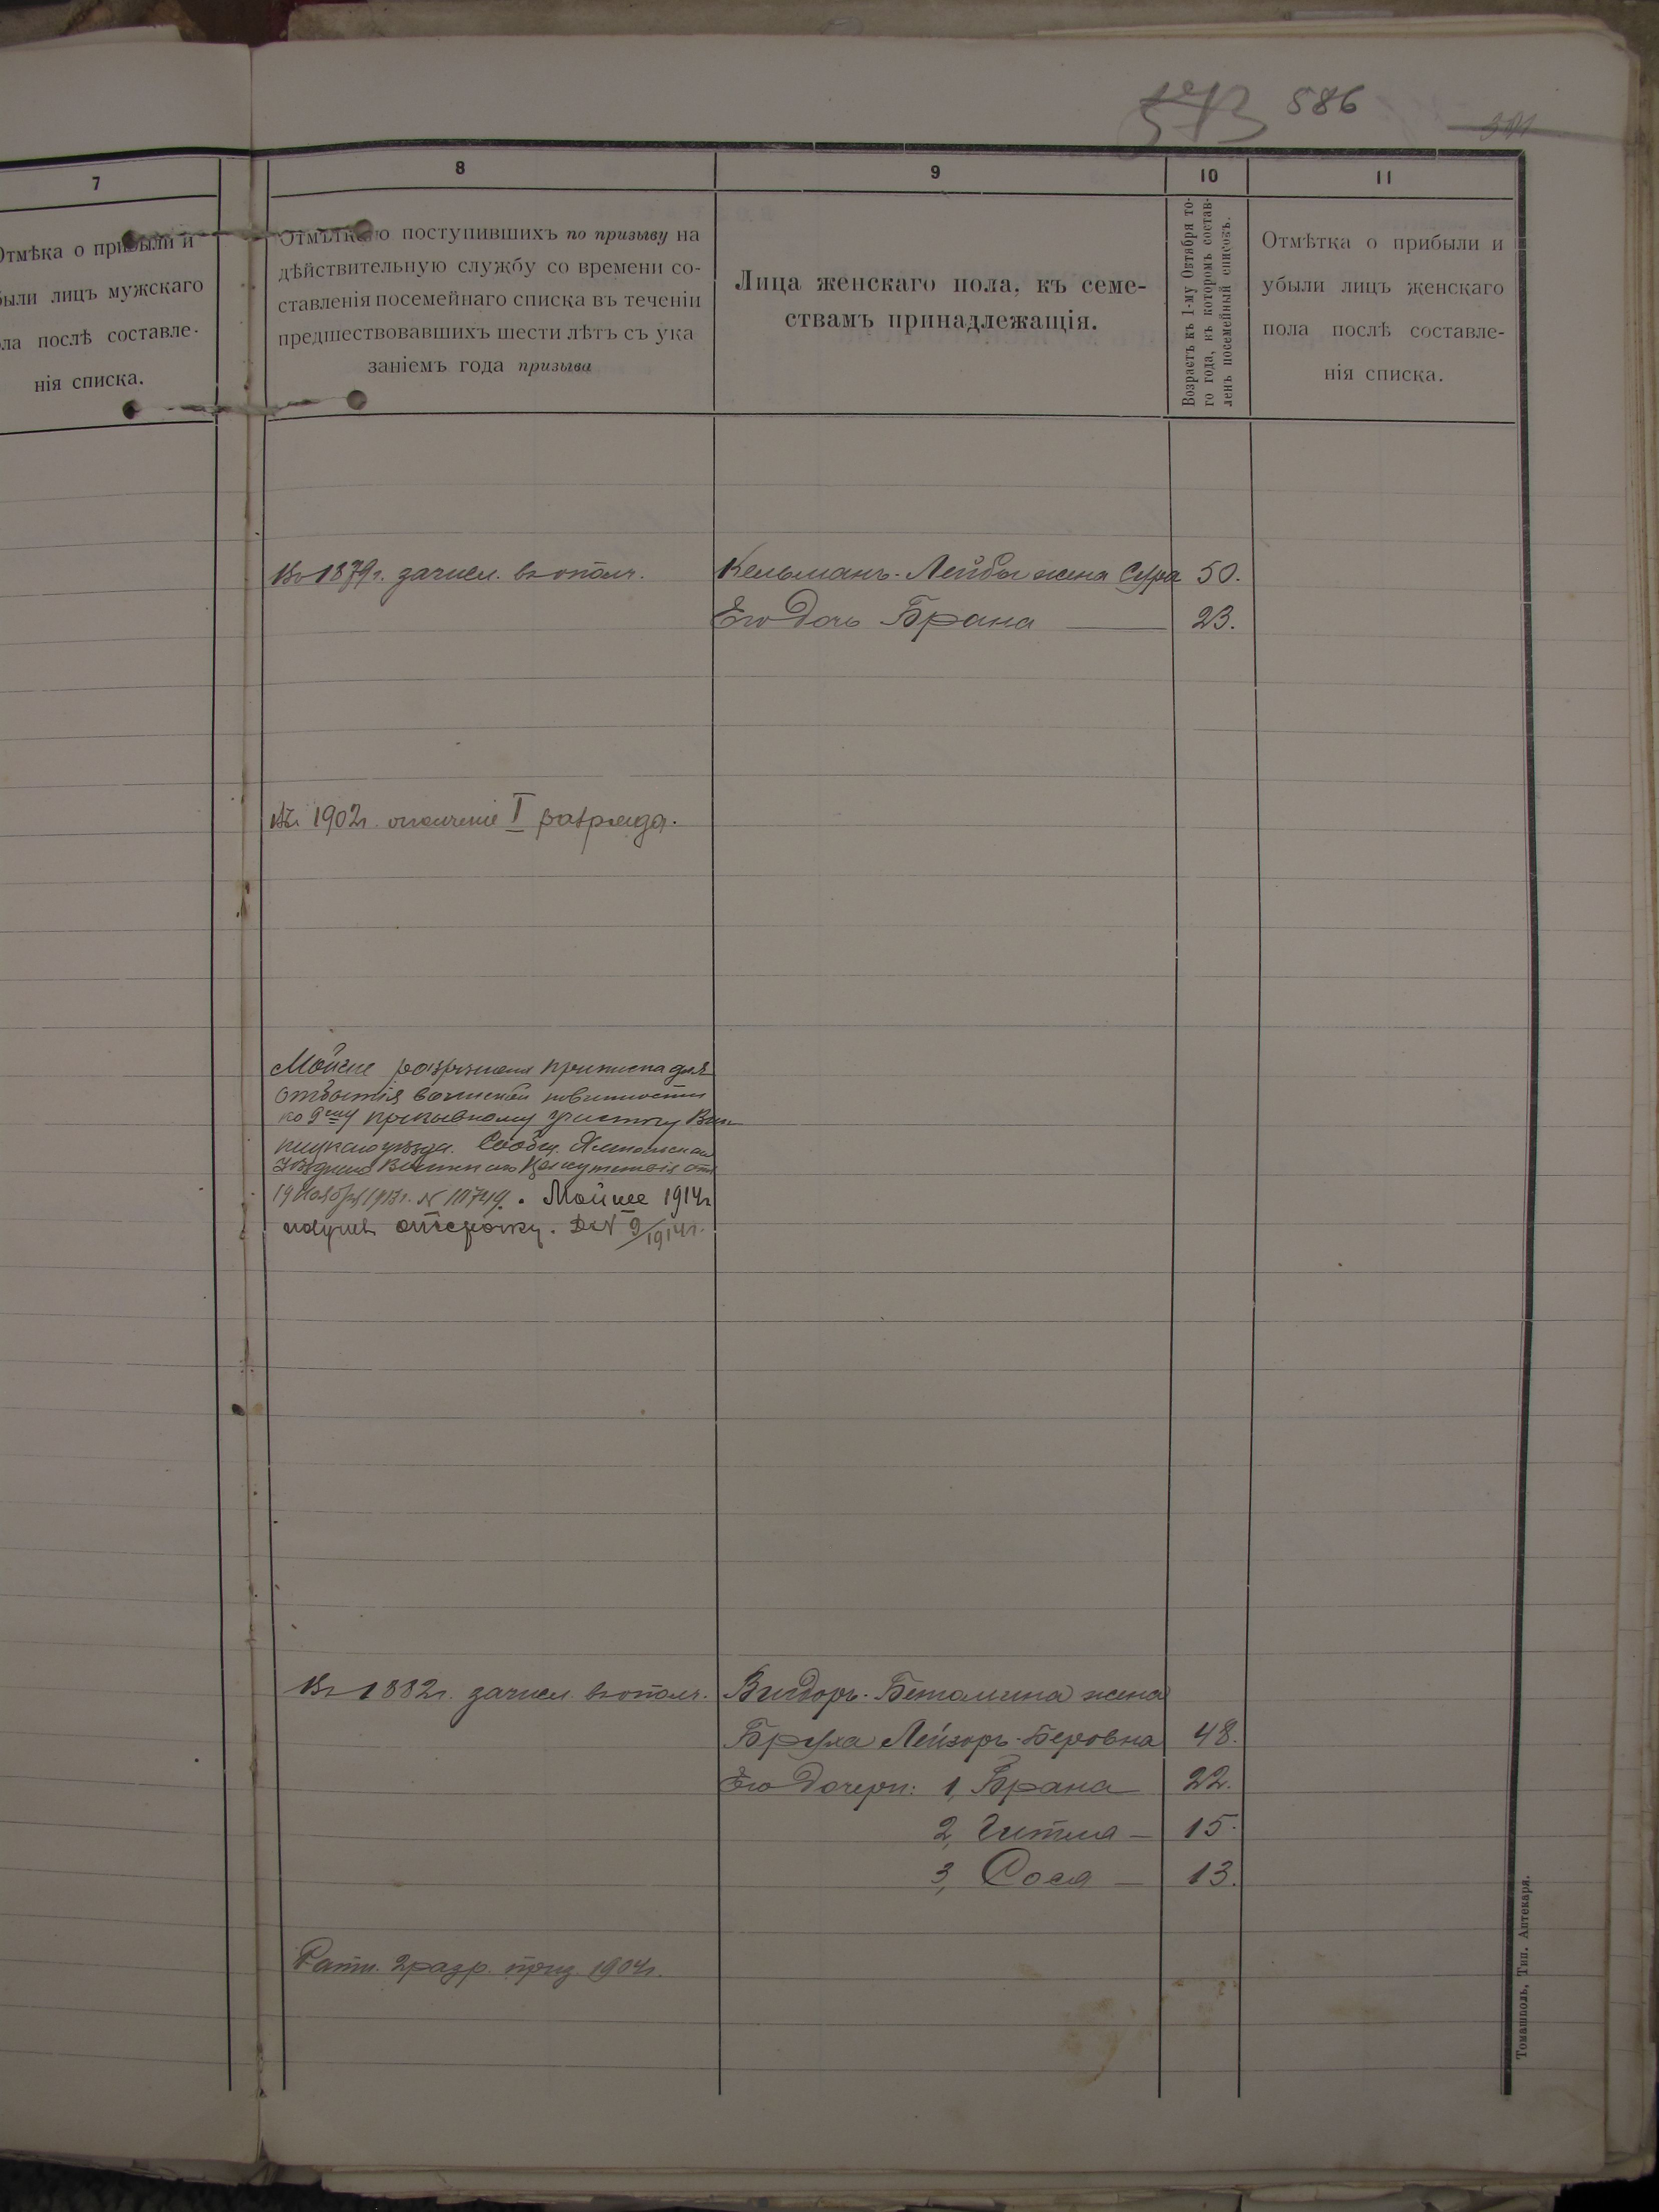 586
7
8
9
10
11
Отмѣка о прибыли и
были лицъ мужскаго
ла послѣ составле-
нія списка.
Отмѣтка о поступившихъ по призыву на
дѣйствительную службу со времени со-
ставленія посемейнаго списка въ теченіи
предшествовавшихъ шести лѣтъ съ ука
заніемъ года призыва
Лица женскаго пола, къ семе-
ствамъ принадлежащія.
Возрастъ къ 1-му Октября то-
го года, къ которомъ состав-
ленъ посемейный списокъ.
Отмѣтка о прибыли и
убыли лицъ женскаго
пола послѣ составле-
нія списка.
Въ 1879г. зачисл. въ ополч.
Кельманъ-Лейбы жена Сура 50.
Его дочь Брана 23.
Въ 1902г. ополченіе I разряда.
Мойше разрѣшена приписка для
отбытія воинской повинности
ко 9му призывному участку Вин
ницкаго уѣзда. Сообщ. Ямпольскаго
Уѣзднаго Воинскаго Присутствія отъ
19 Ноября 1913г. № 11749. Мойше 1914г
получ. отсрочку. Д№ 9/1914г.
Въ 1882г. зачисл. въ ополч.
Вигдоръ-Беталина жена
Бруха Лейзоръ-Беровна 48.
Его дочери: 1, Брана 22.
2, Гитля — 15.
3, Сося — 13.
Ратн. 2 разр. приз. 1904г.
Томашполь, Тип. Аптекаря.